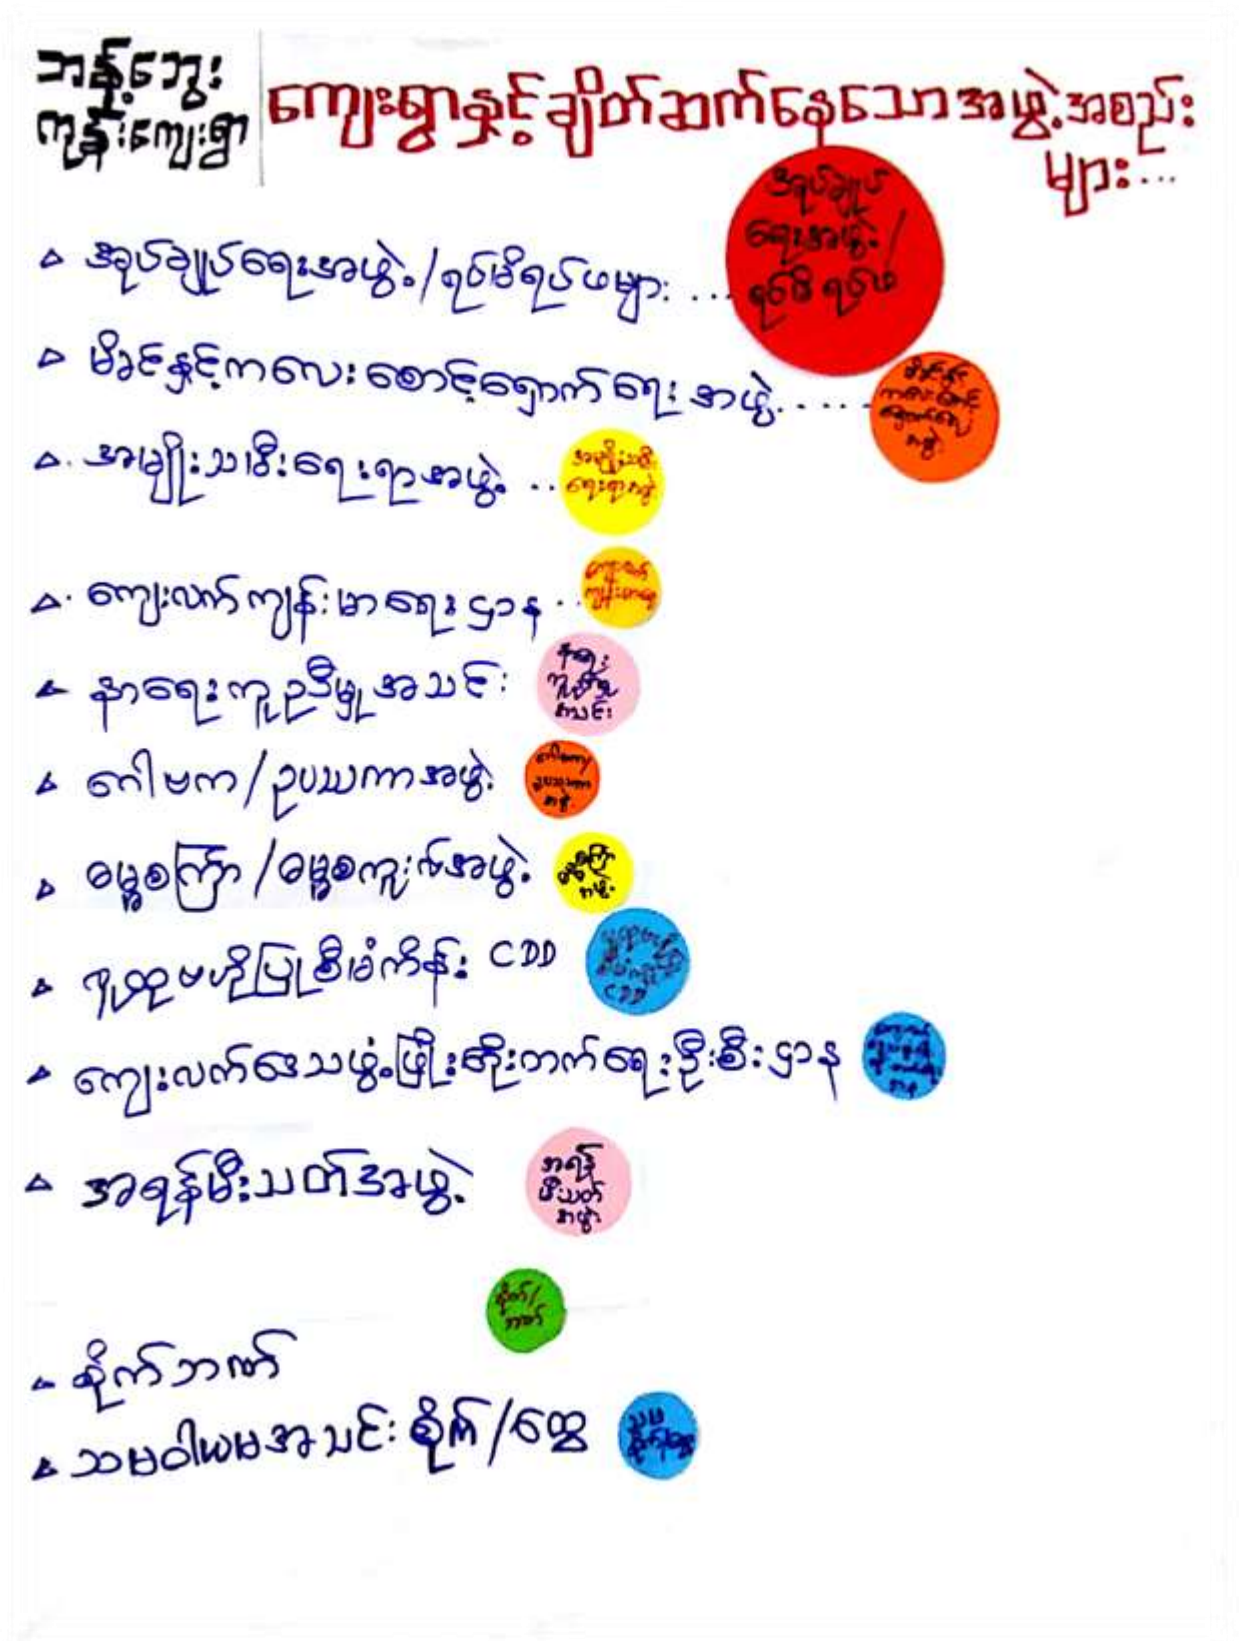 ဘန့်ဘွေး
ကုန်းကျေးရွာ
ကျေးရွာနှင့်ချိတ်ဆက်နေသော အဖွဲ့အစည်း
များ...
အုပ်ချုပ်
ရေးအဖွဲ့/
ရပ်မိရပ်ဖ
အုပ်ချုပ်ရေးအဖွဲ့/ရပ်မိရပ်ဖများ ...
မိခင်နှင့်ကလေး စောင့်ရှောက်ရေး အဖွဲ့.....
မိခင်နှင့်
ကလေးစောင့်
ရှောက်ရေး
အဖွဲ့
အမျိုးသမီးရေးရာအဖွဲ့ ..
အမျိုးသမီး
ရေးရာအဖွဲ့
ကျေးလက်ကျန်းမာရေးဌာန ..
ကျေးလက်
နာရေးကူညီမှုအသင်း
နာရေး
ကူညီမှု
အသင်း
ဂေါပက/ဥပသကာအဖွဲ့
ဂေါပက/
ဥပသကာ
အဖွဲ့
ဓမ္မစကြာ/ အဖွဲ့
ဓမ္မစကြာ
အဖွဲ့
လူထုဗဟိုပြုစီမံကိန်း CDD
CDD
ကျေးလက်ဒေသဖွံ့ဖြိုးတိုးတက်ရေးဦးစီးဌာန
ကျေးလက်
ဌာန
အရန်မီးသတ်အဖွဲ့
အရန်
မီးသတ်
အဖွဲ့
စိုက်/
ဘဏ်
စိုက်ဘဏ်
သမဝါယမအသင်း စိုက်/ထွေ
သမ
စိုက်/ထွေ